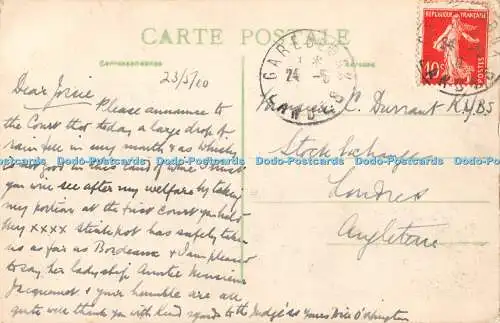 CARTE POSTALE
Correspondance
Adresse
RÉPUBLIQUE FRANÇAISE
10c
POSTES
GARE
24 -5
23/5/10
Dear Josie
Please announce to
the Court that today a large drop of
rain fell in my mouth & as whisky
is not good in this land of wine I trust
you will see after my welfare by taking
my portion at the first Court you hold
my xxxx has safely taken
us as far as Bordeaux & I am pleased
to say her ladyship Auntie Monsieur
Jacquemot & your humble are all
quite well thank you with kind regards to the Judge
C. Durrant
Stock Exchange
Londres
Angleterre
Dodo-Postcards Dodo-Postcards Dodo-Postcards Dodo-Postcards